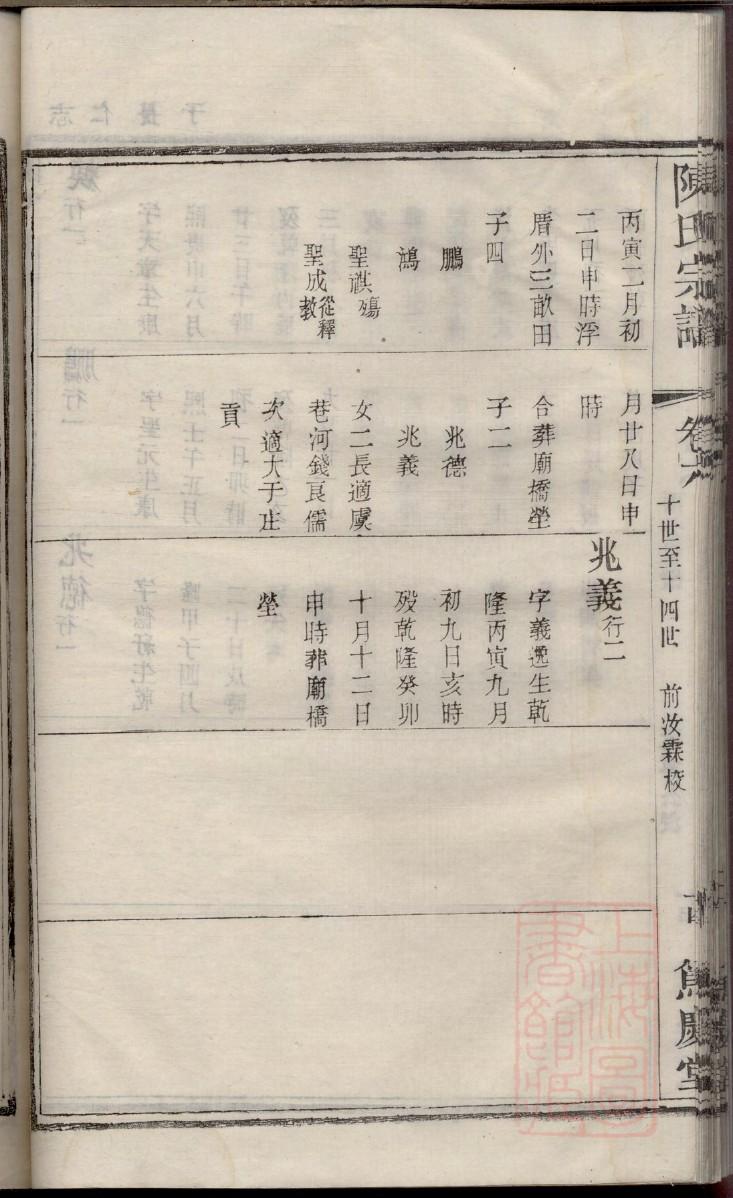 陳氏宗譜
卷六
十世至十四世
前汝霖校
丙寅二月初
二日申時浮
厝外三畝田
子四
鵬
鴻
聖祺殤
聖成從釋教
月廿八日申
時
合葬廟橋塋
子二
兆德
兆義
女二長適虞
巷河錢良儒
次適大于庄
貢
兆義行二
字義逸生乾
隆丙寅九月
初九日亥時
殁乾隆癸卯
十月十二日
申時葬廟橋
塋
上海圖書館藏